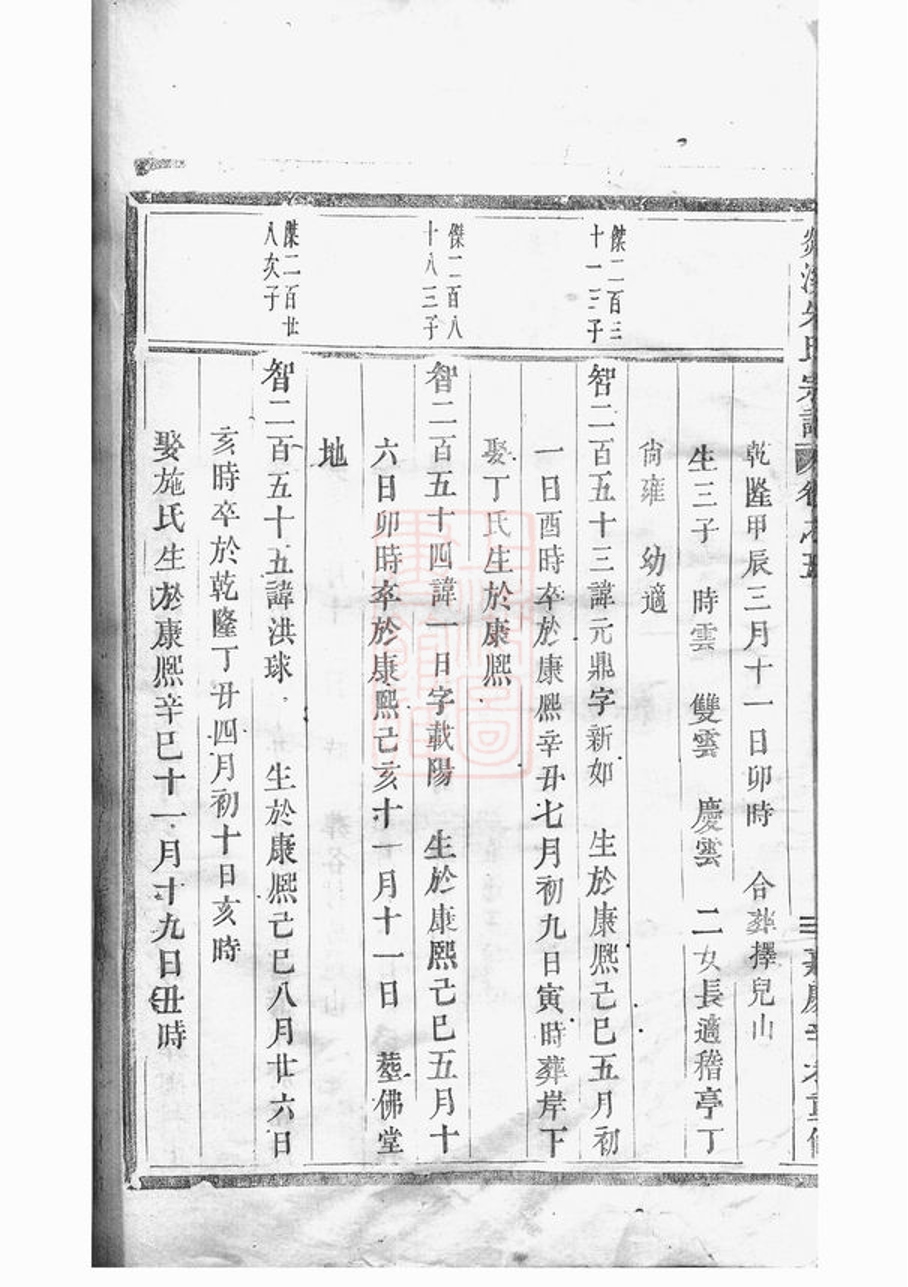 宗譜
卷之五
三
乾隆甲辰三月十一日卯時 合葬擇兒山
生三子 時雲 雙雲 慶雲 二女長適稽亭丁
尙雍 幼適
傑二百三
十一三子
智二百五十三諱元鼎字新如 生於康熙己巳五月初
一日酉時卒於康熙辛丑七月初九日寅時葬岸下
娶丁氏生於康熙
傑二百八
十八三子
智二百五十四諱一日字載陽 生於康熙己巳五月十
六日卯時卒於康熙己亥十一月十一日 塟佛堂
地
傑二百廿
八次子
智二百五十五諱洪球 生於康熙己巳八月廿六日
亥時卒於乾隆丁丑四月初十日亥時
娶施氏生於康熙辛巳十一月十九日丑時